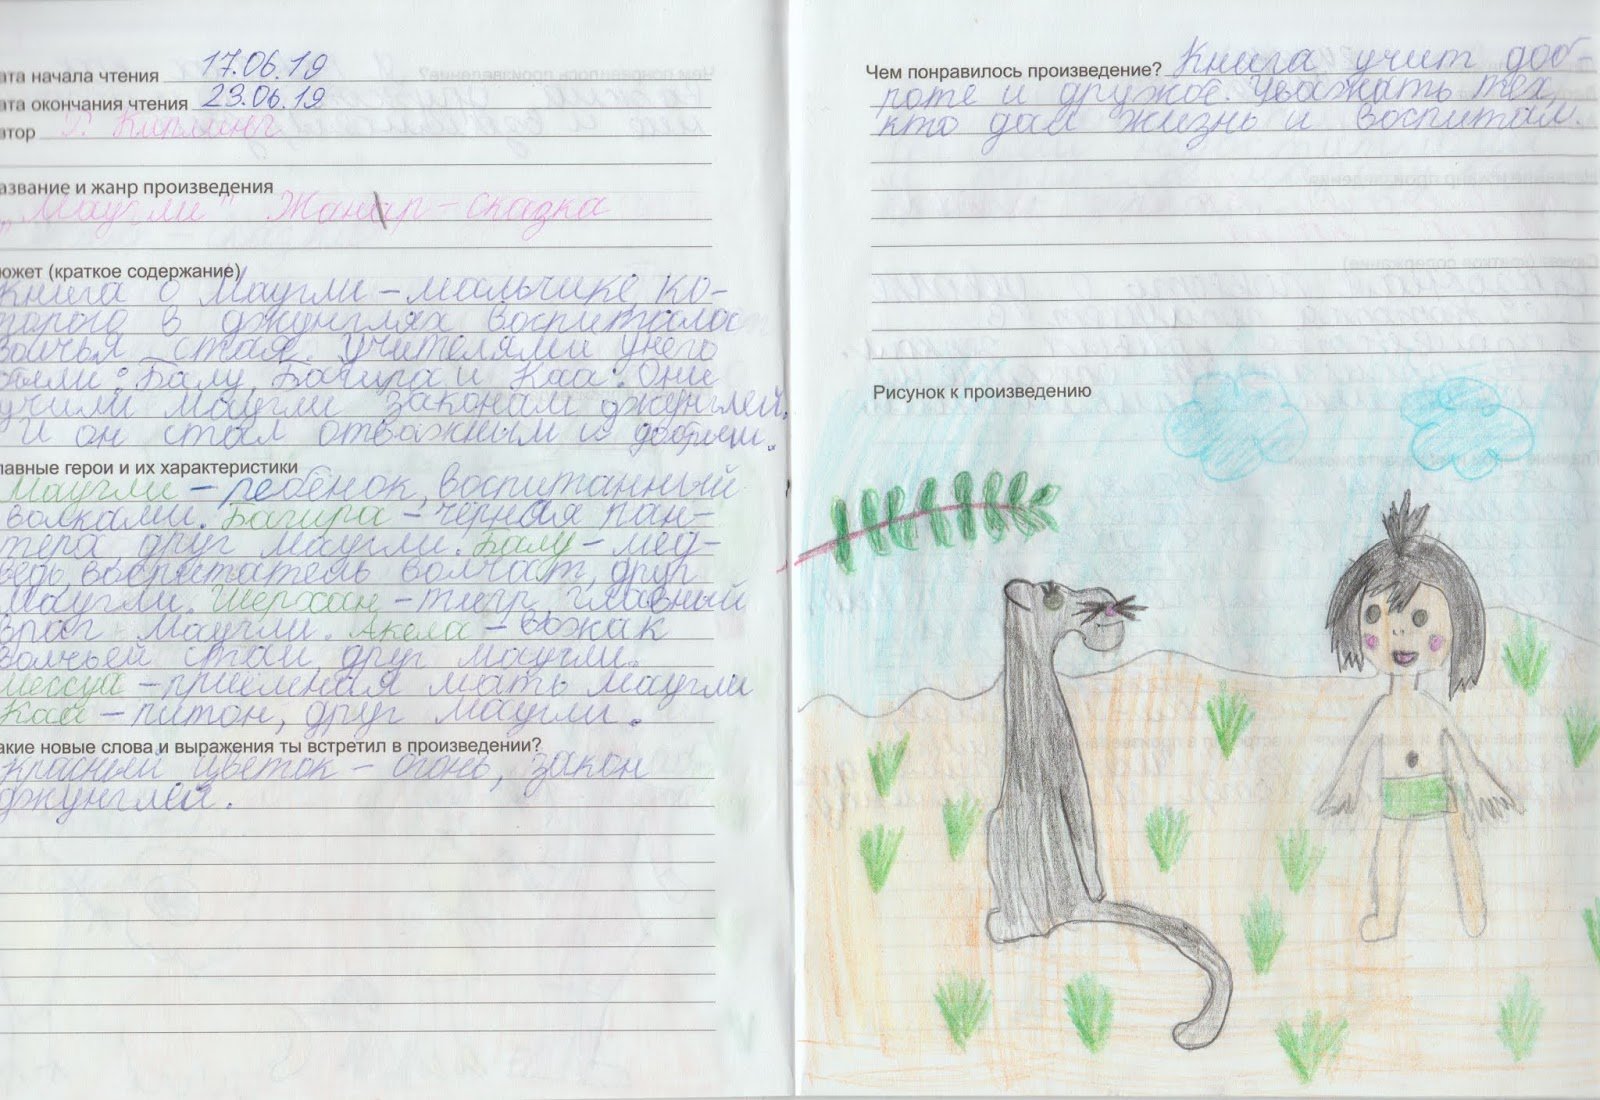 ата начала чтения 17.06.19
ата окончания чтения 23.06.19
втор Р. Киплинг
азвание и жанр произведения
„Маугли" Жанар - сказка
южет (краткое содержание)
книга о Маугли – мальчике, ко-
торого в джунглях воспитала
волчья стая. Учителями у него
были: Балу, Багира и Каа. Они
учили Маугли законам джунглей.
И он стал отважным и добрым.
лавные герои и их характеристики
Маугли – ребёнок, воспитанный
волками. Багира – чёрная пан-
тера, друг Маугли. Балу – мед-
ведь, воспитатель волчат, друг
Маугли. Шерхан – тигр, главный
враг Маугли. Акела – вожак
волчьей стаи, друг Маугли.
Мессуа – приёмная мать Маугли
Каа – питон, друг Маугли.
акие новые слова и выражения ты встретил в произведении?
красный цветок – огонь, закон
джунглей.
Чем понравилось произведение? Книга учит доб-
роте и дружбе. Уважать тех,
кто дал жизнь и воспитал.
Рисунок к произведению